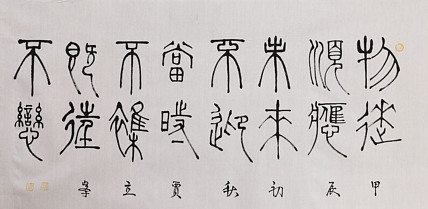 物來
順應
未來
不迎
當時
不雜
既過
不戀
甲辰初秋賈立峯